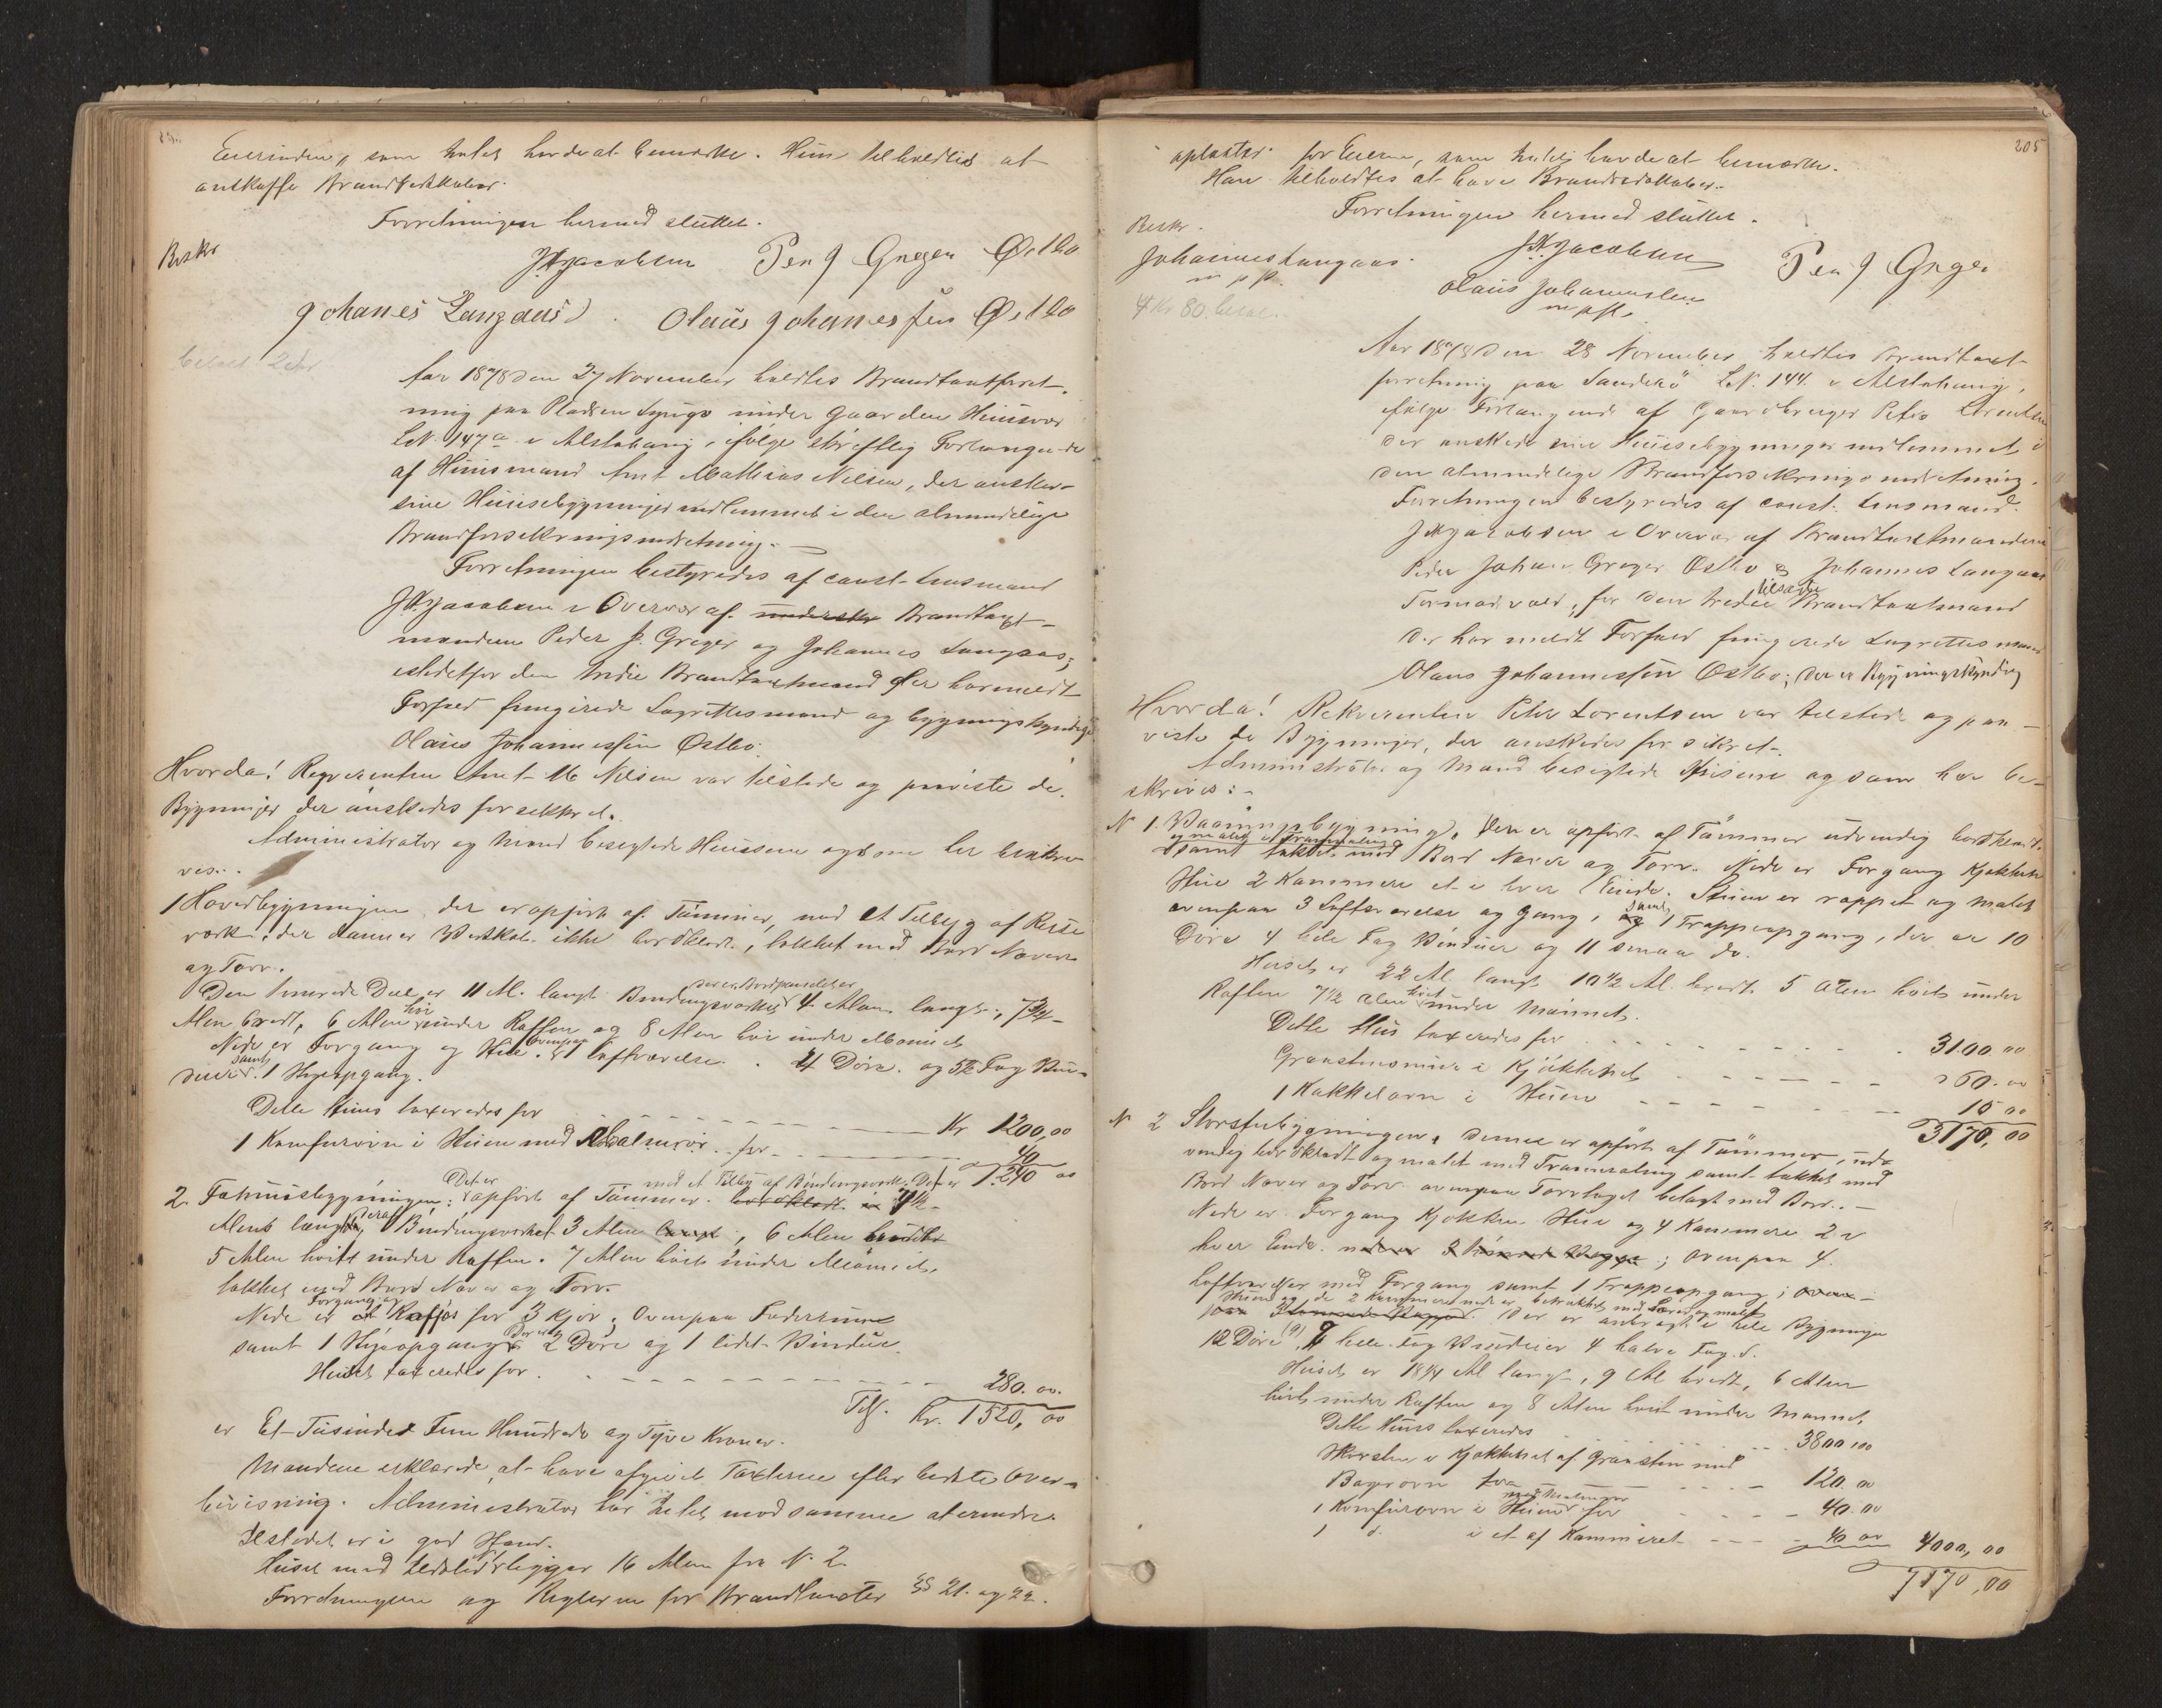 Eierinden, som Intet havde at bemærke. Hun tilholdtes at
anskaffe Brandredskaber.
Forretningen hermed sluttet.
Beskr
J A Jacobsen Peu J Greger Østbo
Johanes Langaas Olaus Johanessen Østbo
betalt 2 Kr
Aar 1878 den 27 November holdtes Brandtaxtforret-
ning paa Pladsen under Gaarden Huusvær
LN. 147a i Alstahaug, ifølge skriftlig Forlangende
af Huusmand Amt Mathias Nilsen, der ønsker
sine Huusebygninger indlemmet i den almindelige
Brandforsikringsindretning.
Forretningen bestyredes af const. Lensmand
J A Jacobsen i Overvær af Brandtaxt-
mændene Peder J. Greger og Johannes Langaas;
istedetfor den tredie Brandtaxtmand der har meldt
Forfald fungerede Lagrettesmand og bygningskyndige
Olaus Johannessen Østbo.
Hvorda! Reqvirenten Amt M Nilsen var tilstede og paaviste de
Bygninger der ønskedes forsikkret.
Administrator og Mænd besigtede Huusene og som her beskri-
ves:
1 Hovedbygningen, der er opført af Tømmer, med et Tilbyg af Reise
værk, der danner Vedskot. ikke bordklædt, tækket med Bord Næver
og Torv.
Den tømrede Deel er 11 Al. langt Bindingsværket der er Bordpanelet er 4 Alen langt, 7 3/4
Alen bredt, 6 Alen høi under Raften og 8 Alen høi under Mønnet
Nede er Forgang og Stue. ovenpaa 1 Loftværelse. 4 Døre. og 5 1/2 Fag Vin-
duer samt 1 Steenopgang.
Dette Huus taxeredes for Kr 1200,00
1 Komfurovn i Stuen med for 40
1.240 00
2. Fahuusbygningen: Det er opført af Tømmer. med et Tilbyg af Bindingsværk. Det er
Alen langt, deraf Bindingsværket 3 Alen, 6 Alen bredt
5 Alen høit under Raften. 7 Alen høit under Mønnet,
tækket med Bord Næver og Torv.
Nede er Forgang og Fjøs for 3 Kjør, Ovenpaa Foderrum
samt 1 Steenopgang. Der er 2 Døre og 1 lidet Vindue.
Huset taxeredes for 280.00.
Tils. Kr. 1520,00
er Et Tusinde Fem Hundrede og Tyve Kroner.
Mændene erklærede at have afgivet Taxterne efter bedste Over-
beviisning. Administrator har Intet mod samme at erindre.
Ildstedet er i god Stand.
Huset med Ildsted ligger 16 Alen fra N. 2.
Forordningen og Reglerne for Brandtaxter §§ 21. og 22.
205
oplæstes for Eieren, som Intet havde at bemærke.
Han tilholdtes at have Brandredskaber.
Forretningen hermed sluttet.
Beskr.
Johannes Langaas J A Jacobsen Peu J Greger
m p p. Olaus Johannessen
m p p.
4 Kr 80. betal.
Aar 1878 den 28 November holdtes Brandtaxt-
forretning paa Sandø LN. 144. i Alstahaug,
ifølge Forlangende af Gaardbruger Peter Lorentsen
der ønskede sine Huusebygninger indlemmet i
den almindelige Brandforsikringsindretning.
Forretningen bestyredes af const. Lensmand
J A Jacobsen i Overvær af Brandtaxtmændene
Peder Johan Greger Østbo og Johannes Langaas
for den tredie tilsatte Brandtaxtmand
der har meldt Forfald fungerede Lagrettesmand
Olaus Johannessen Østbo, der er Bygningskyndig
Hvorda! Rekvirenten Peter Lorentsen var tilstede og paa-
viste de Bygninger, der ønskedes forsikret.
Administrator og Mænd besigtede Husene og som her be-
skrives:
N 1. Vaaningsbygning. Den er opført af Tømmer udvendig bordklædt
og malet med Tranmaling samt tækket med Bord Næver og Torv. Nede er Forgang Kjøkken
Stue 2 Kammere et i hver Ende. Stuen er rappet og malet
ovenpaa 3 Loftværelse og Gang, samt 1 Trappeopgang, der er 10
Døre 4 hele Fag Vinduer og 11 smaa do.
Huset er 22 Al. langt 10 1/2 Al. bredt. 5 Alen høit under
Raften 7 1/2 Alen høit under Mønnet.
Dette Hus taxeredes for 3100.00
i Kjøkkenet 60.00
1 Kakkelovn i Stuen 15 00
3170,00
N 2 Storstuebygningen, denne er opført af Tømmer, ud-
vendig bordklædt og malet med Tranmaling samt tækket med
Bord Næver og Torv. ovenpaa Torvtaget belagt med Bord.
Nede er Forgang Kjøkken Stue og 4 Kammere 2 i
hver Ende. ; Ovenpaa 4
Loftværelser med Forgang samt 1 Trappeopgang;
Stuen og de 2 Kammere nede er betrukket med Lærred og malet
Der er anbragt i hele Bygningen
12 Døre 9 hele Fag Vinduer 4 halve Fag d.
Huset er 18 3/4 Al langt, 9 Al bredt, 6 Alen
høit under Raften og 8 Alen høit under Mønnet,
Dette Huus taxeredes 3800,00
Skorsten i Kjøkkenet af Graasten med
Bagerovn 120.00
1 Komfurovn i Stuen for 40.00
1 d. i et af Kammeret 40 00 4000,00
7170,00